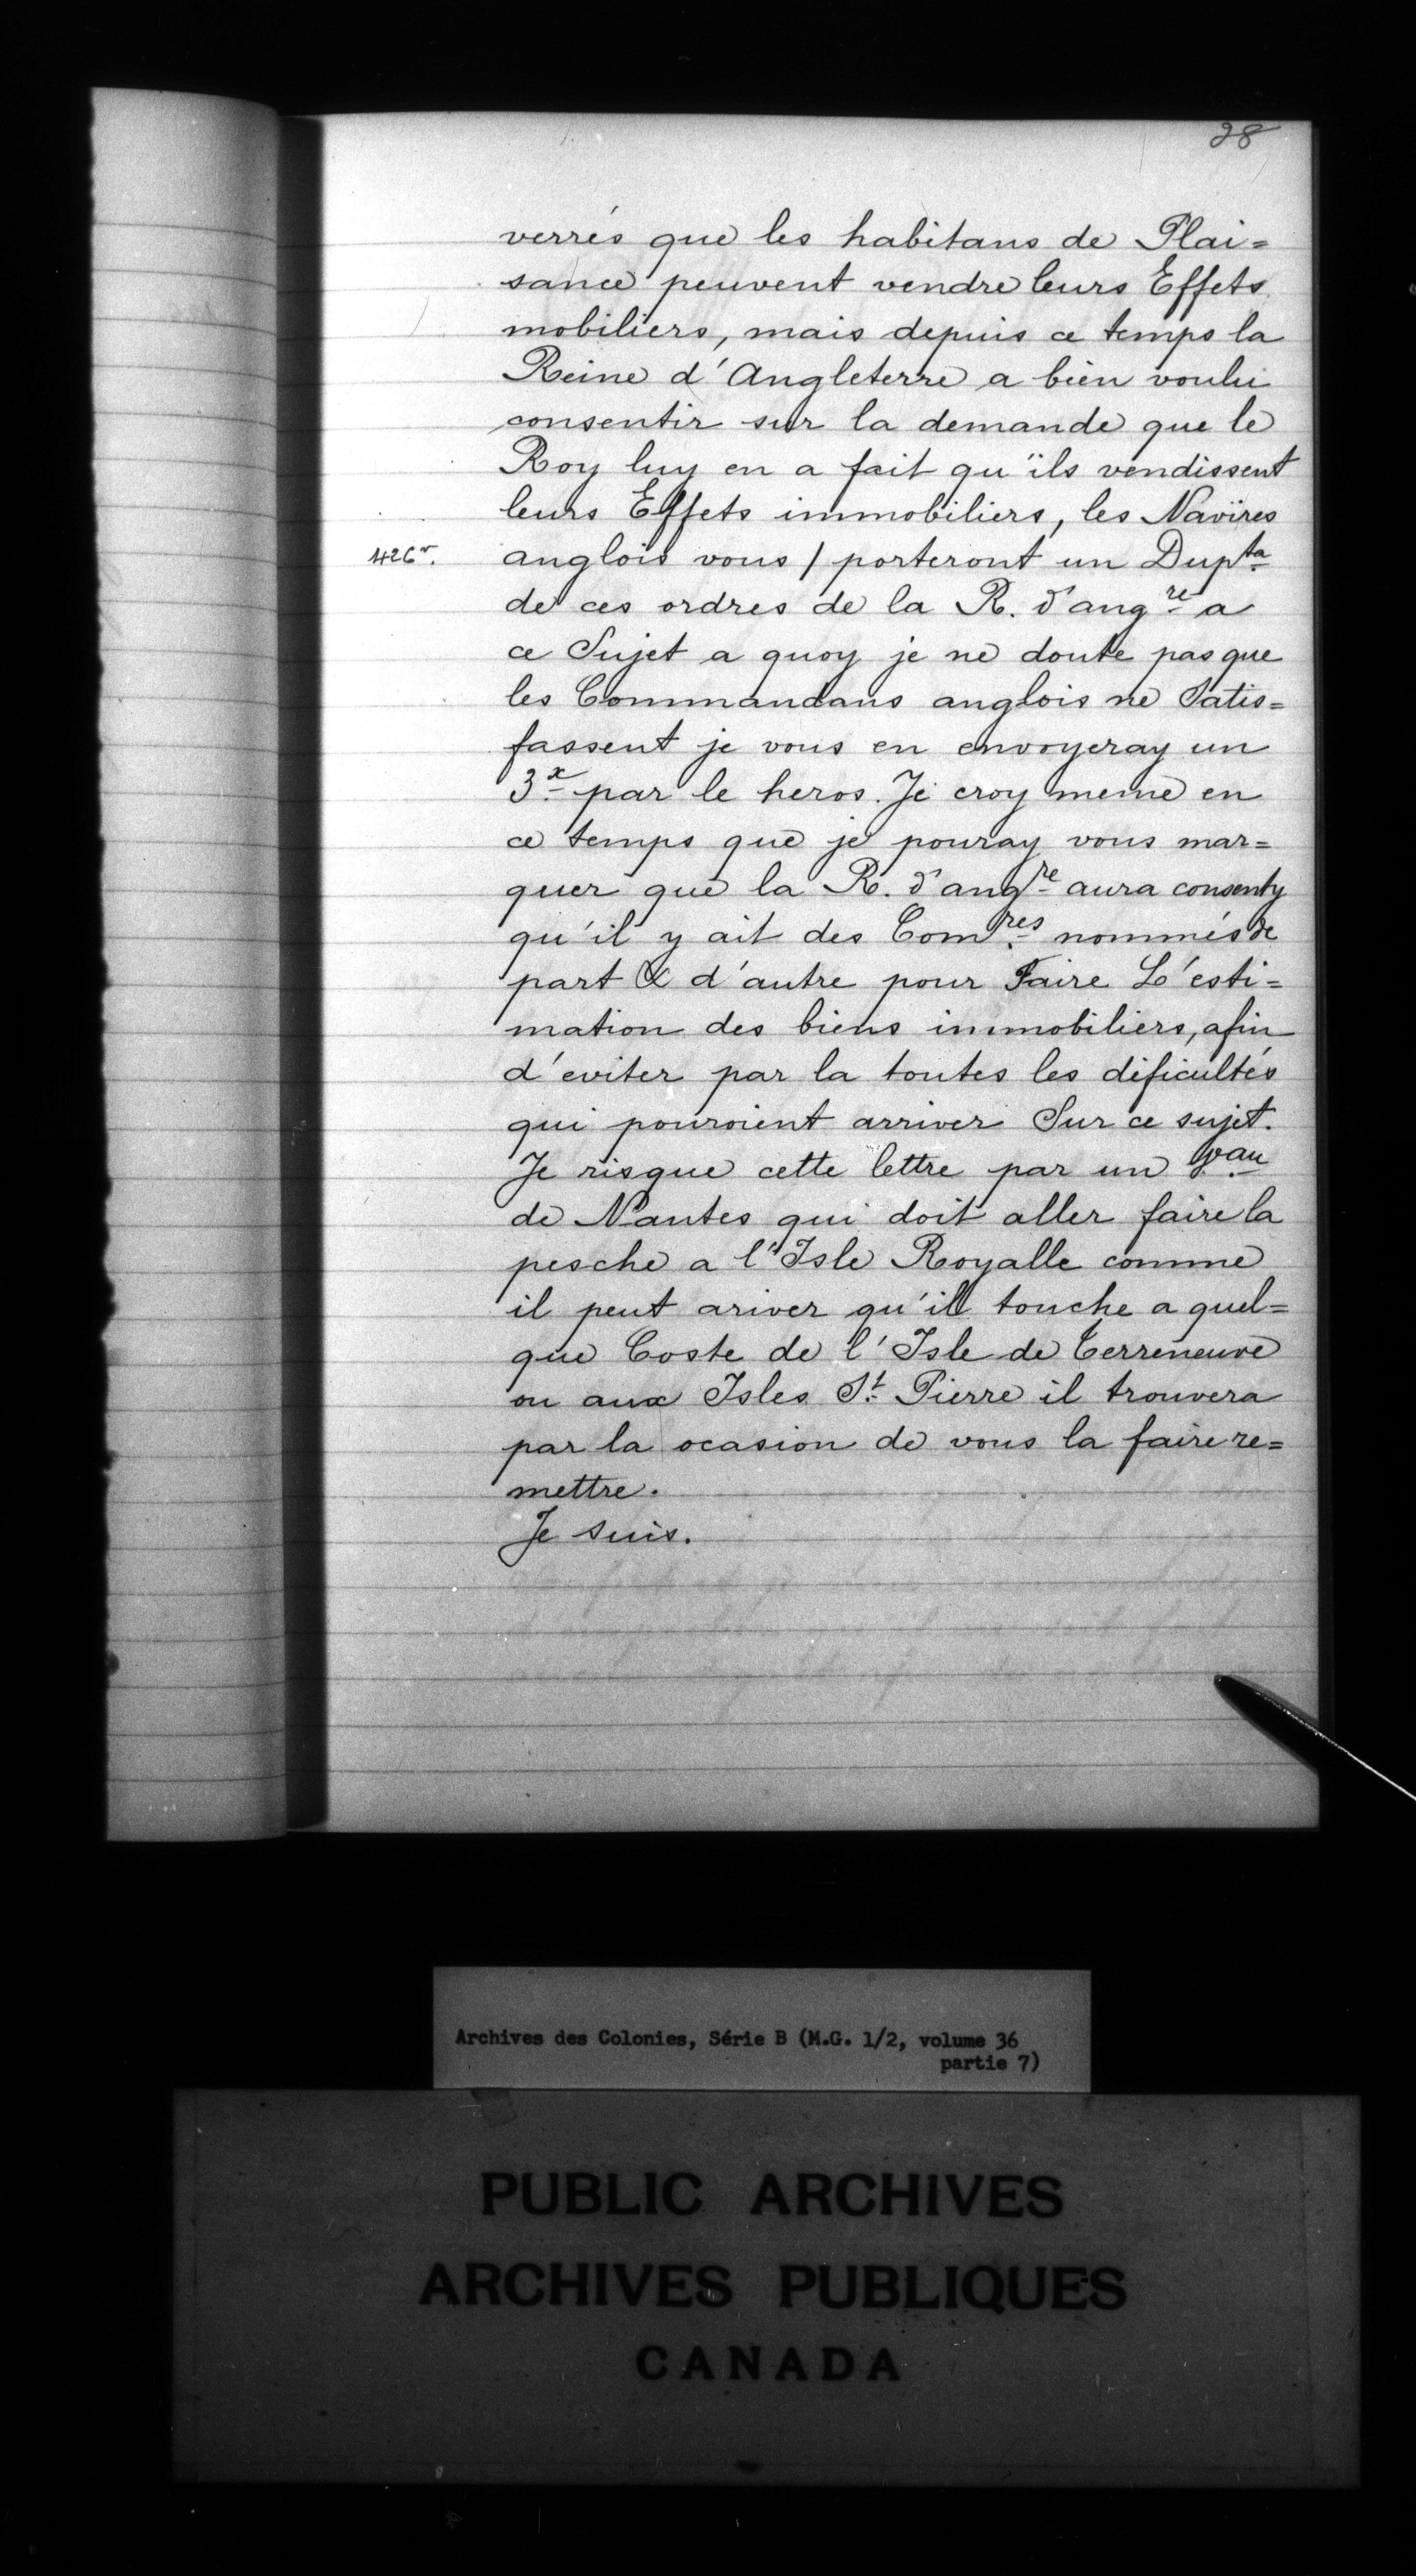 28
verrés que les habitans de Plai=
sance peuvent vendre leurs Effets
mobiliers, mais depuis ce temps la
Reine d'Angleterre a bien voulu
consentir sur la demande que le
Roy luy en a fait qu'ils vendissent
leurs Effets immobiliers, les Navires
426v. anglois vous / porteront un Dupta
de ces ordres de la R. d'angre a
ce Sujet a quoy je ne doute pas que
les Commandans anglois ne Satis=
fassent je vous en envoyeray un
3x par le heros. Je croy meme en
ce temps que je pouray vous mar=
quer que la R. d'angre aura consenty
qu'il y ait des Comres nommés de
part & d'autre pour Faire L'esti=
mation des biens immobiliers, afin
d'eviter par la toutes les dificultés
qui pouroient arriver Sur ce sujet.
Je risque cette lettre par un Vau
de Nantes qui doit aller faire la
pesche a l'Isle Royalle comme
il peut ariver qu'il touche a quel=
que Coste de l'Isle de Terreneuve
ou aux Isles St Pierre il trouvera
par la ocasion de vous la faire re=
mettre.
Je suis.
Archives des Colonies, Série B (M.G. 1/2, volume 36
partie 7)
PUBLIC ARCHIVES
ARCHIVES PUBLIQUES
CANADA